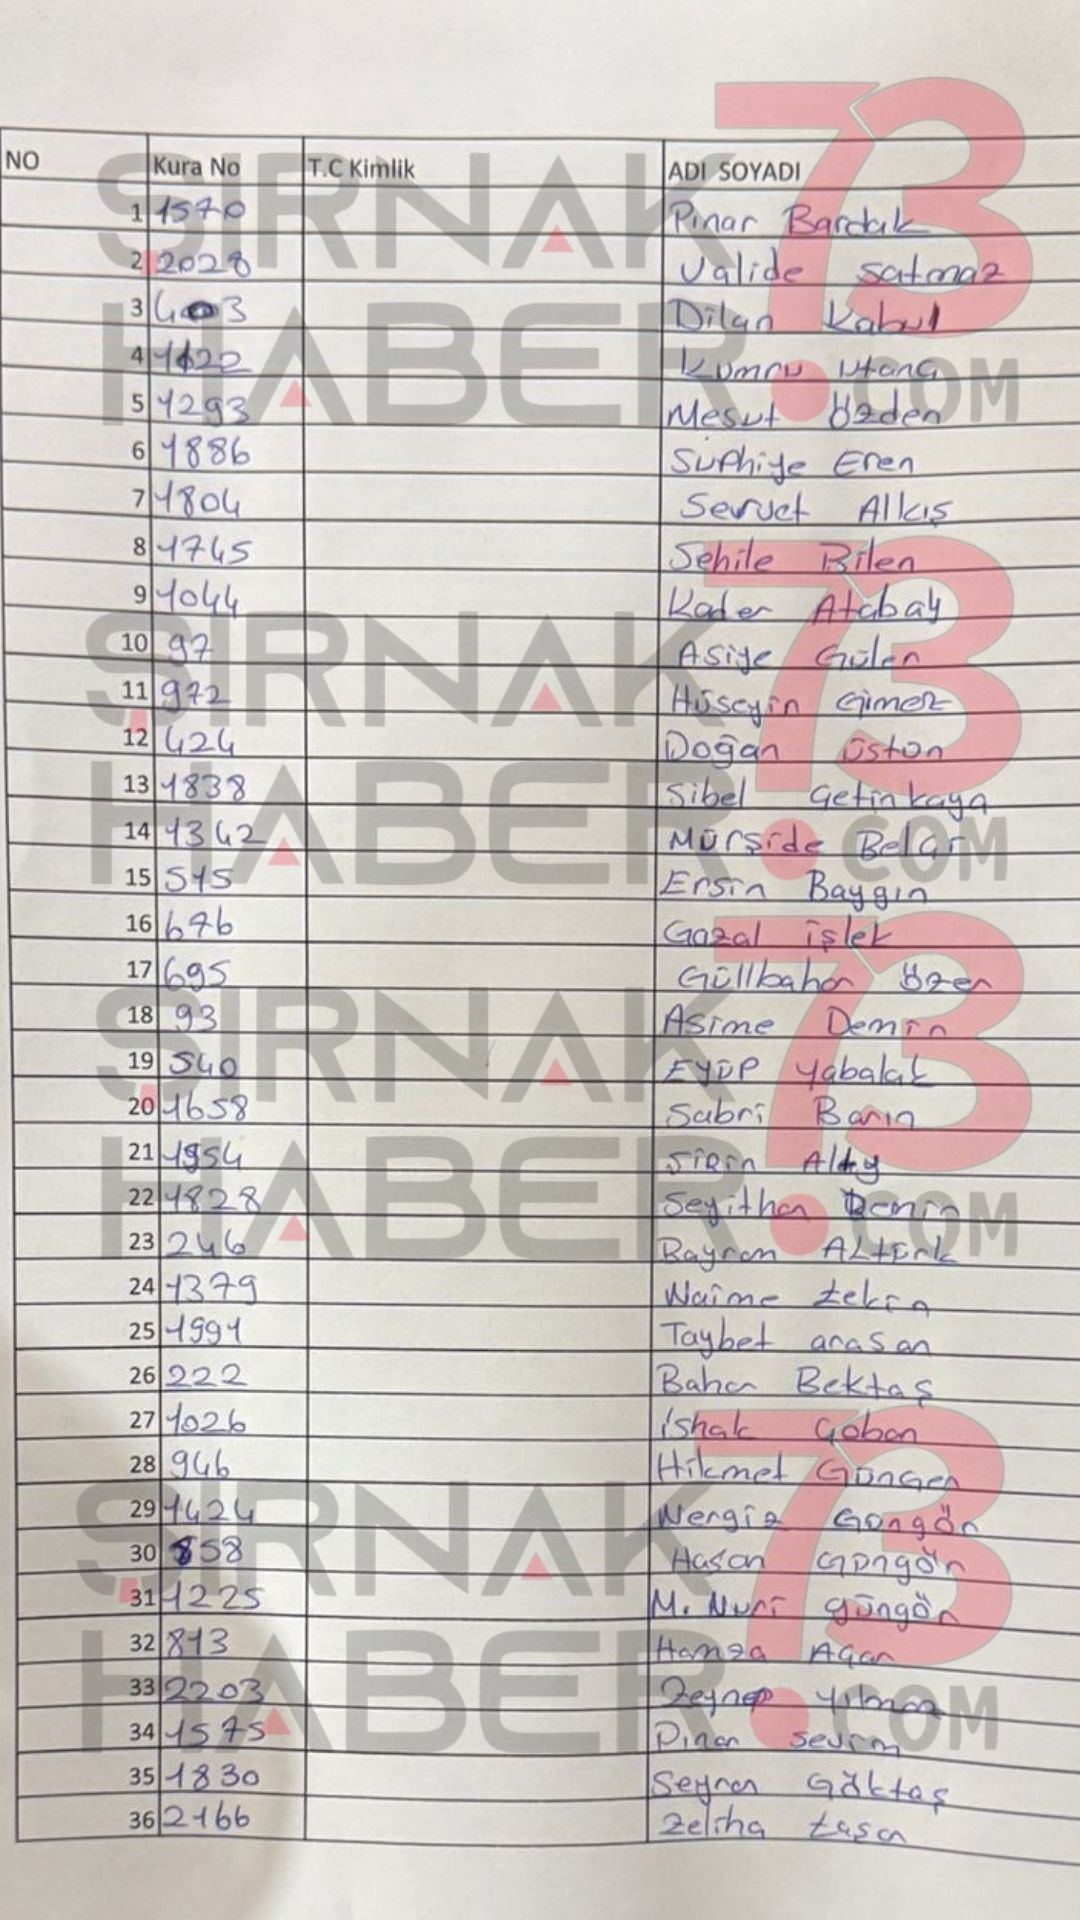 NO Kura No T.C Kimlik ADI SOYADI
1 1570 Pınar Bardak
2 2028 Valide Satmaz
3 403 Dilan Kabul
4 1122 Kumru
5 1293 Mesut Özden
6 1886 Suphiye Eren
7 1804 Servet Alkış
8 1745 Sehile Bilen
9 1044 Kader Atabay
10 97 Asiye Gülen
11 972 Hüseyin Gimez
12 424 Doğan üstün
13 1838 Sibel Çetinkaya
14 1342 Mürşide Belgi
15 515 Ersin Baygın
16 676 Gazal işlek
17 695 Güllbahar özer
18 93 Asime Demir
19 540 Eyüp Yabalak
20 1658 Sabri Barın
21 1954 Şirin
22 1828 Seyithan Demir
23 246 Bayram ALtürk
24 1379 Naime tekin
25 1991 Taybet arasan
26 222 Bahar Bektaş
27 1026 ishak Çoban
28 946 Hikmet Güngen
29 1424 Nergiz Güngör
30 858 Hasan Güngör
31 1225 M. Nuri güngör
32 813 Hamza Acar
33 2203 Zeynep Yılmaz
34 1575 Pınar sevim
35 1830 Seyran Göktaş
36 2166 Zeliha taşar
ŞIRNAK 73
HABER.COM
ŞIRNAK 73
HABER.COM
ŞIRNAK 73
HABER.COM
ŞIRNAK 73
HABER.COM